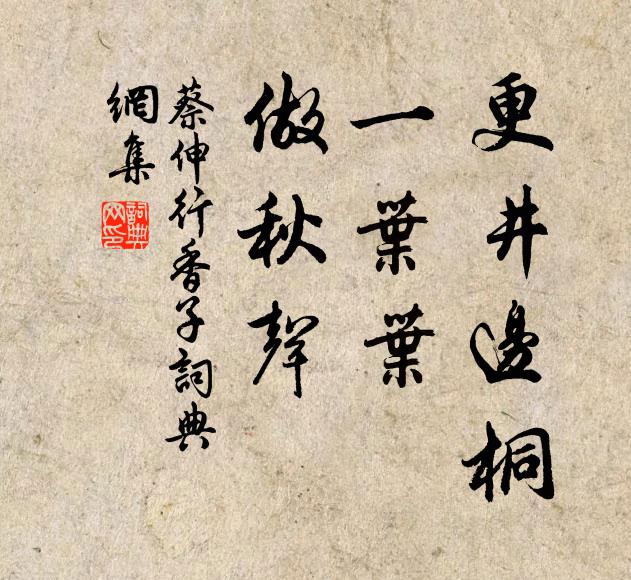 更井邊桐
一葉葉
做秋聲
蔡伸行香子詞典
網集
詞典
网印